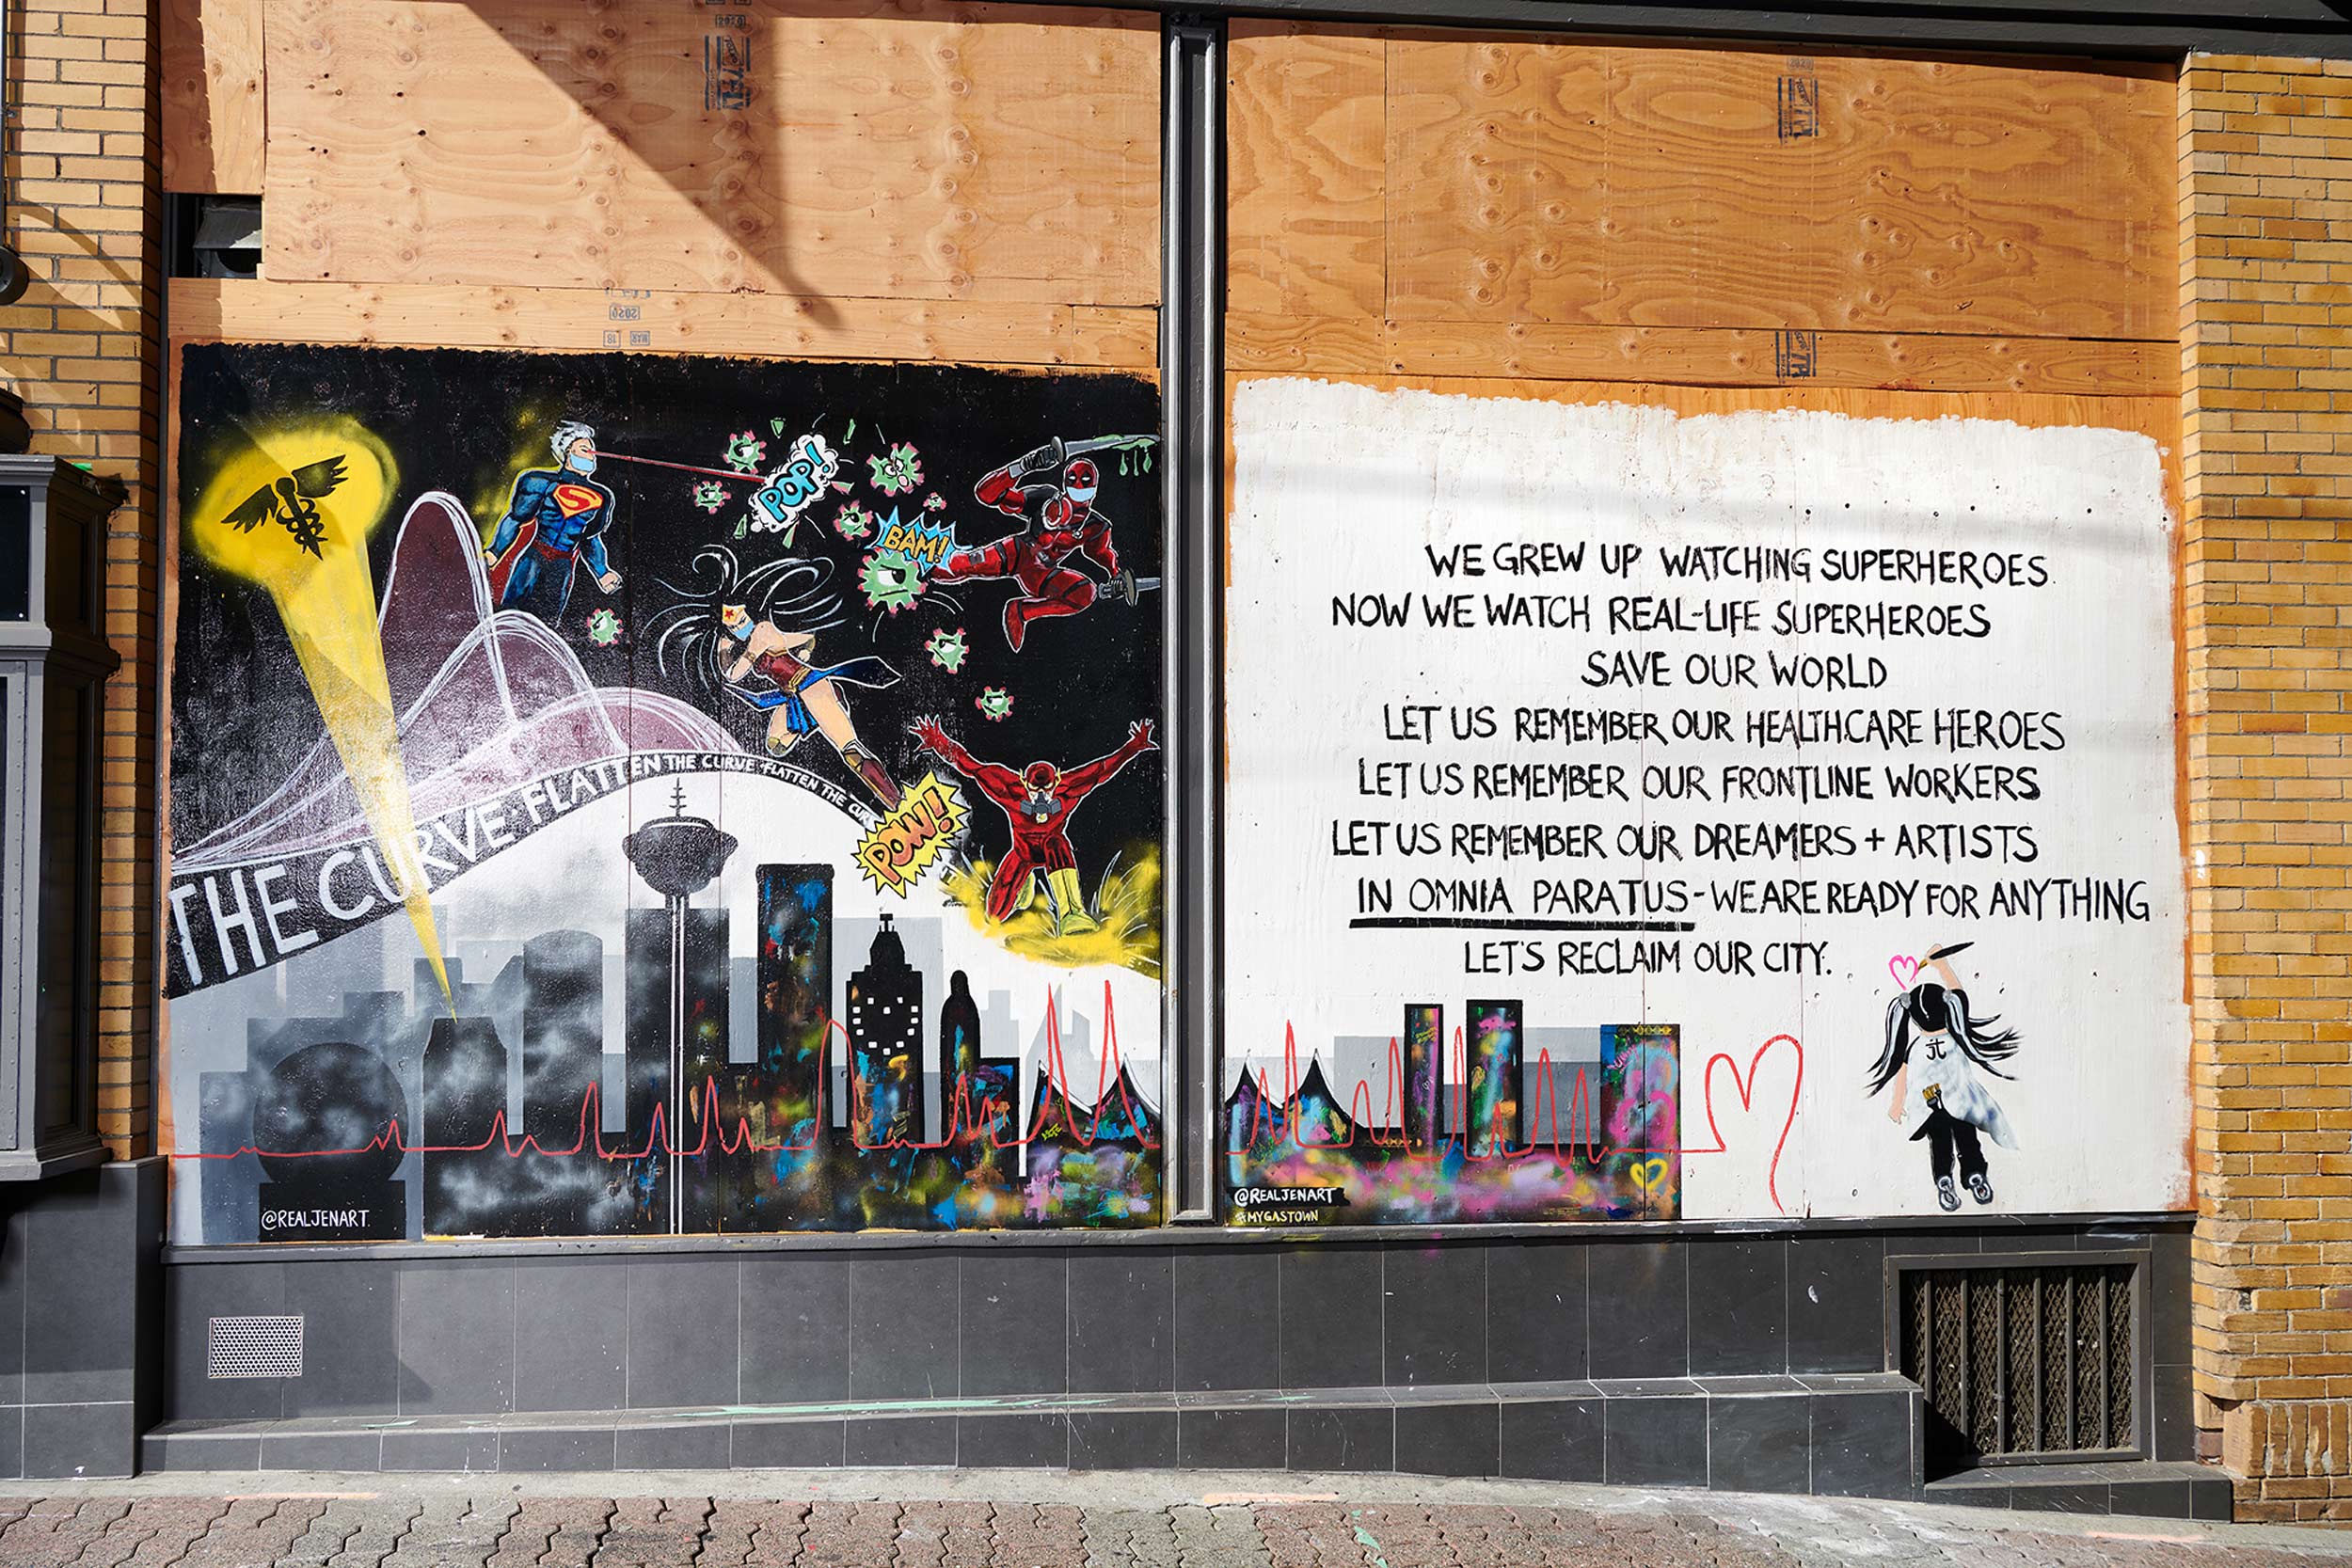 POP!
BAM!
POW!
THE CURVE·FLATTEN THE CURVE·FLATTEN THE CUR
@REALJENART.
WE GREW UP WATCHING SUPERHEROES.
NOW WE WATCH REAL-LIFE SUPERHEROES
SAVE OUR WORLD
LET US REMEMBER OUR HEALTHCARE HEROES
LET US REMEMBER OUR FRONTLINE WORKERS
LET US REMEMBER OUR DREAMERS + ARTISTS
IN OMNIA PARATUS - WE ARE READY FOR ANYTHING
LET'S RECLAIM OUR CITY.
jt
@REALJENART
#MYGASTOWN
2020
18 MAR